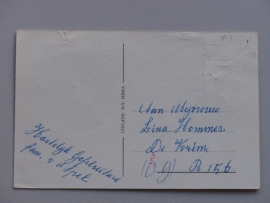 Hartelijk Gefeliciteerd
fam. v. d. Spek
UITGAVE: N.V. HEMA
Aan Mejuffrouw
Lina Hommes
De Krim
B 156